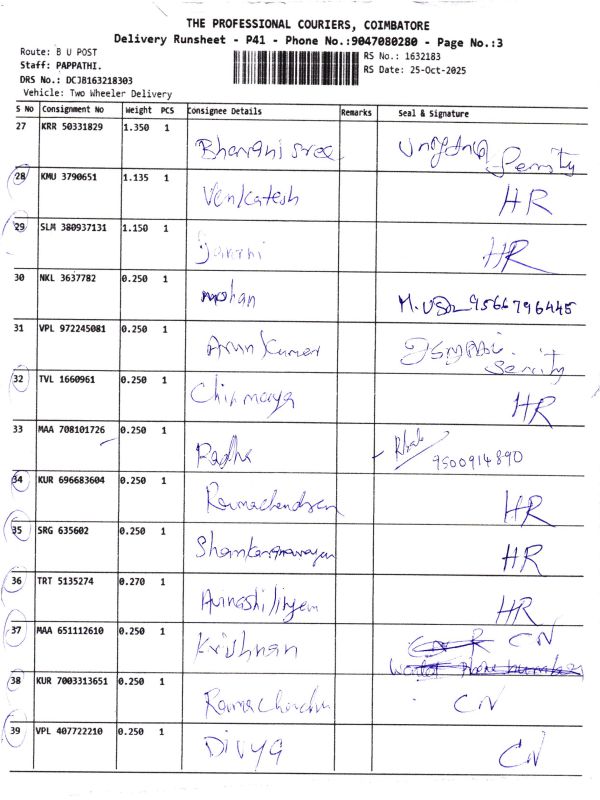 THE PROFESSIONAL COURIERS, COIMBATORE
Delivery Runsheet - P41 - Phone No.:9047080280 - Page No.:3
Route: B U POST
Staff: PAPPATHI.
DRS No.: DCJB163218303
Vehicle: Two Wheeler Delivery
RS No.: 1632183
RS Date: 25-Oct-2025
S No Consignment No Weight PCS Consignee Details Remarks Seal & Signature
27 KRR 50331829 1.350 1 Bharani sree
28 KMU 3790651 1.135 1 Venkatesh HR
29 SLM 380937131 1.150 1 HR
30 NKL 3637782 0.250 1 M. 9566796445
31 VPL 972245081 0.250 1 Arun Kumar
32 TVL 1660961 0.250 1 Chinmaya HR
33 MAA 708101726 0.250 1 Radha 9500914890
34 KUR 696683604 0.250 1 Ramachandran HR
35 SRG 635602 0.250 1 HR
36 TRT 5135274 0.270 1 HR
37 MAA 651112610 0.250 1 Krishnan CN
38 KUR 7003313651 0.250 1 CN
39 VPL 407722210 0.250 1 Divya CN